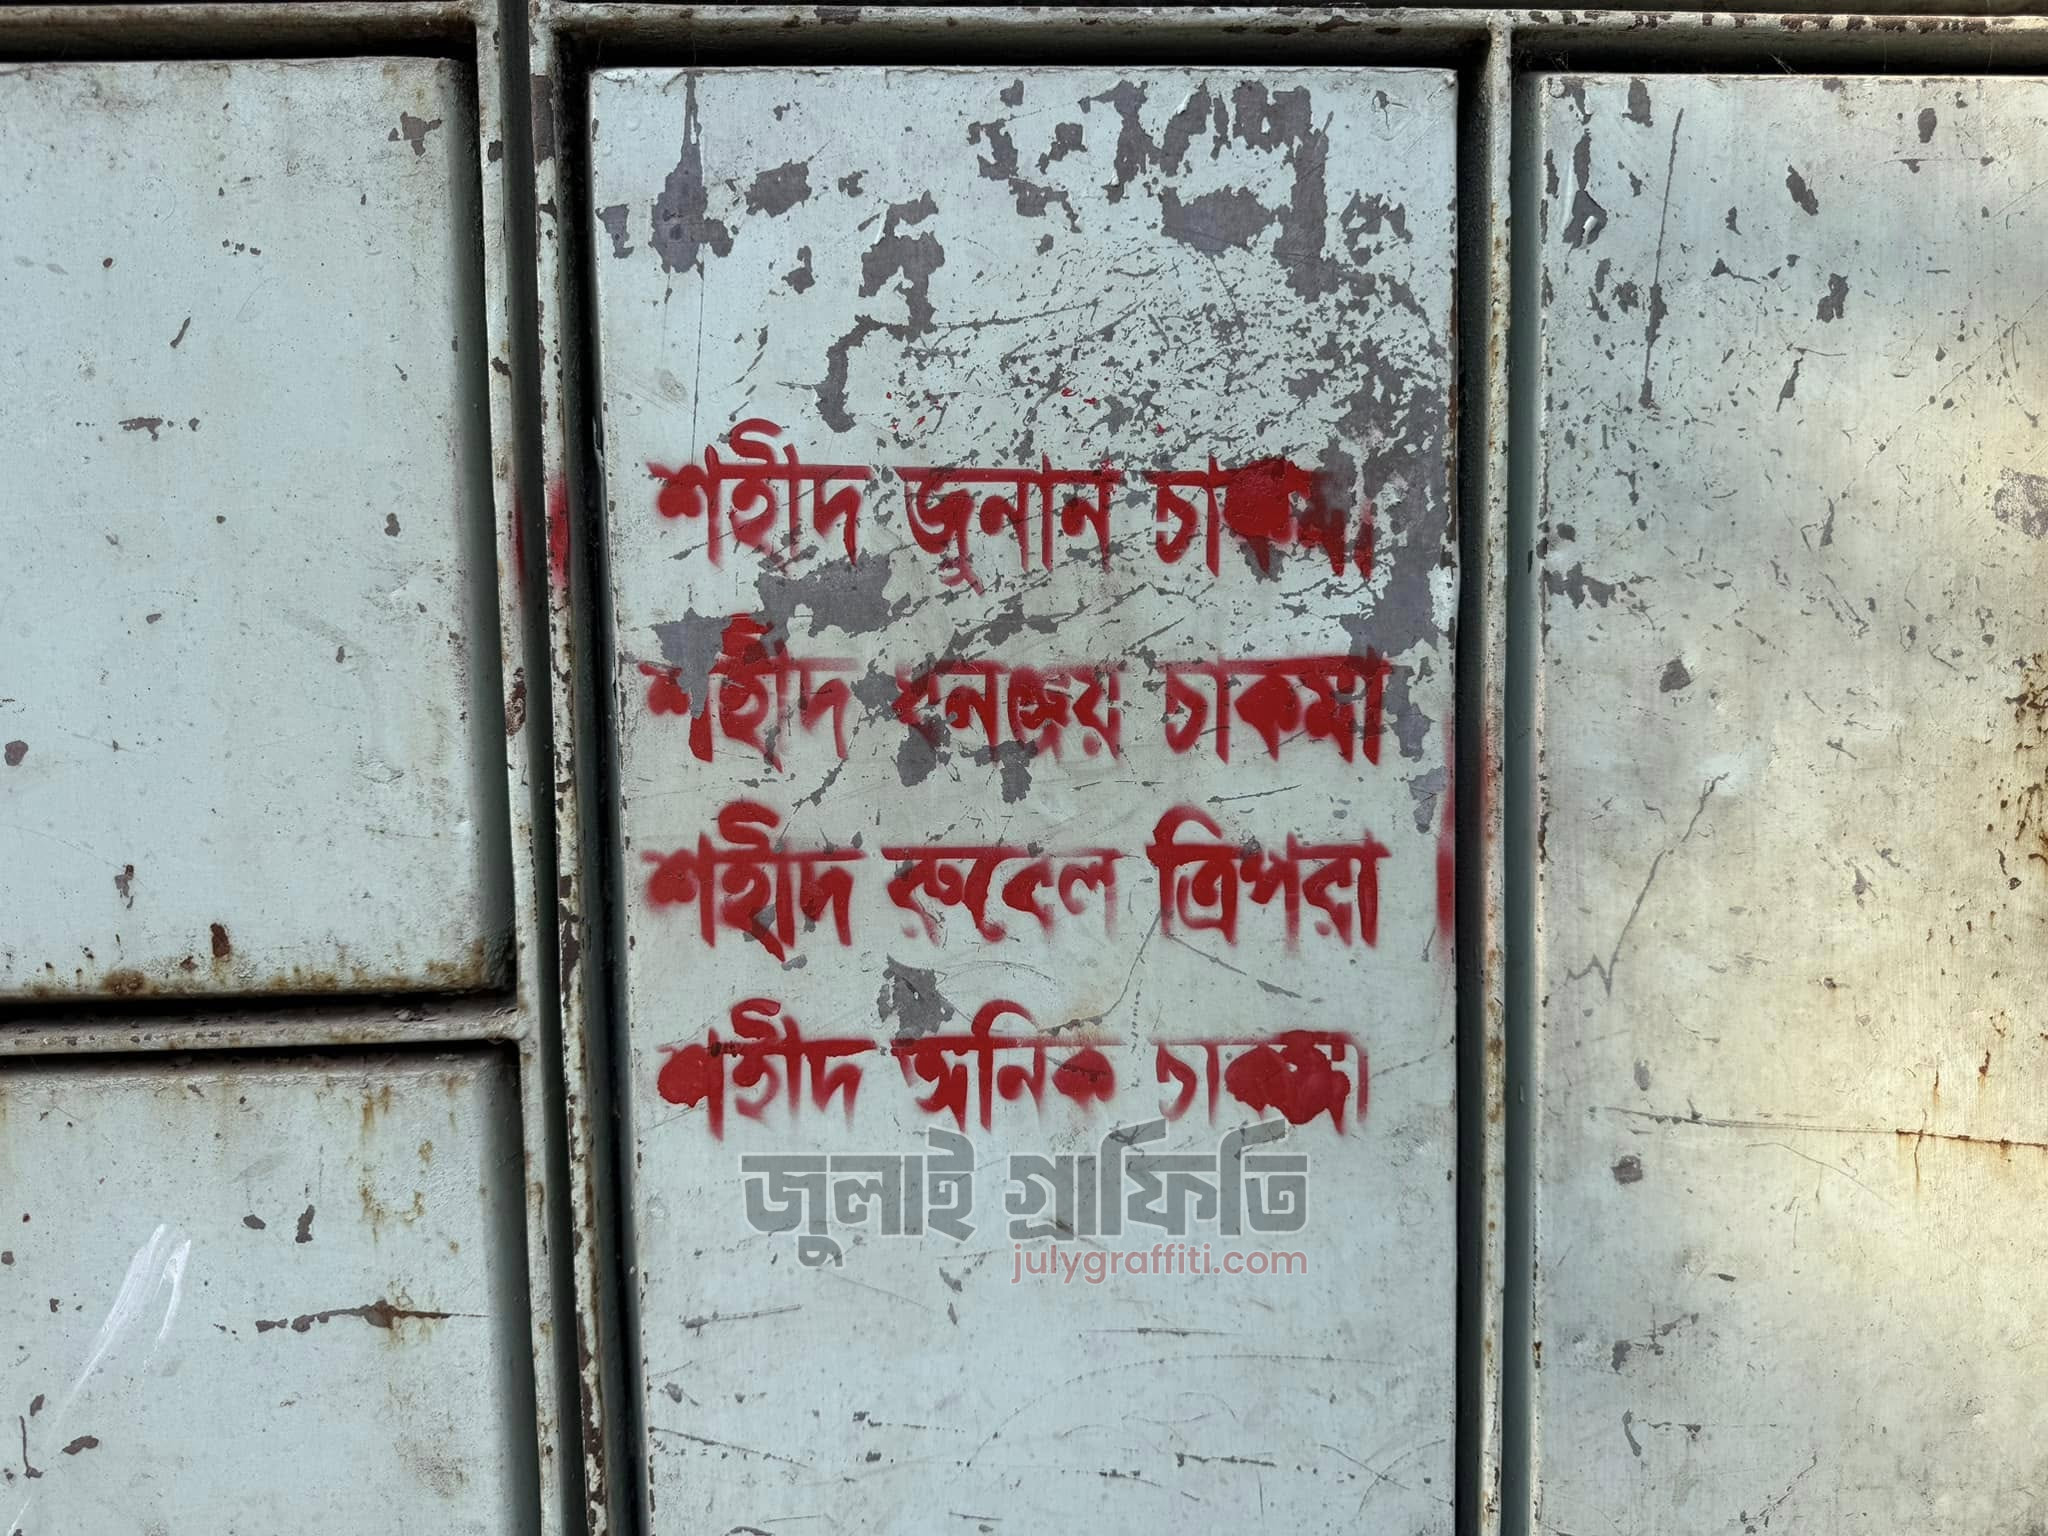 শহীদ জুনান চাকমা
শহীদ ধনঞ্জয় চাকমা
শহীদ রুবেল ত্রিপরা
শহীদ অনিক চাকমা
জুলাই গ্রাফিতি
julygraffiti.com